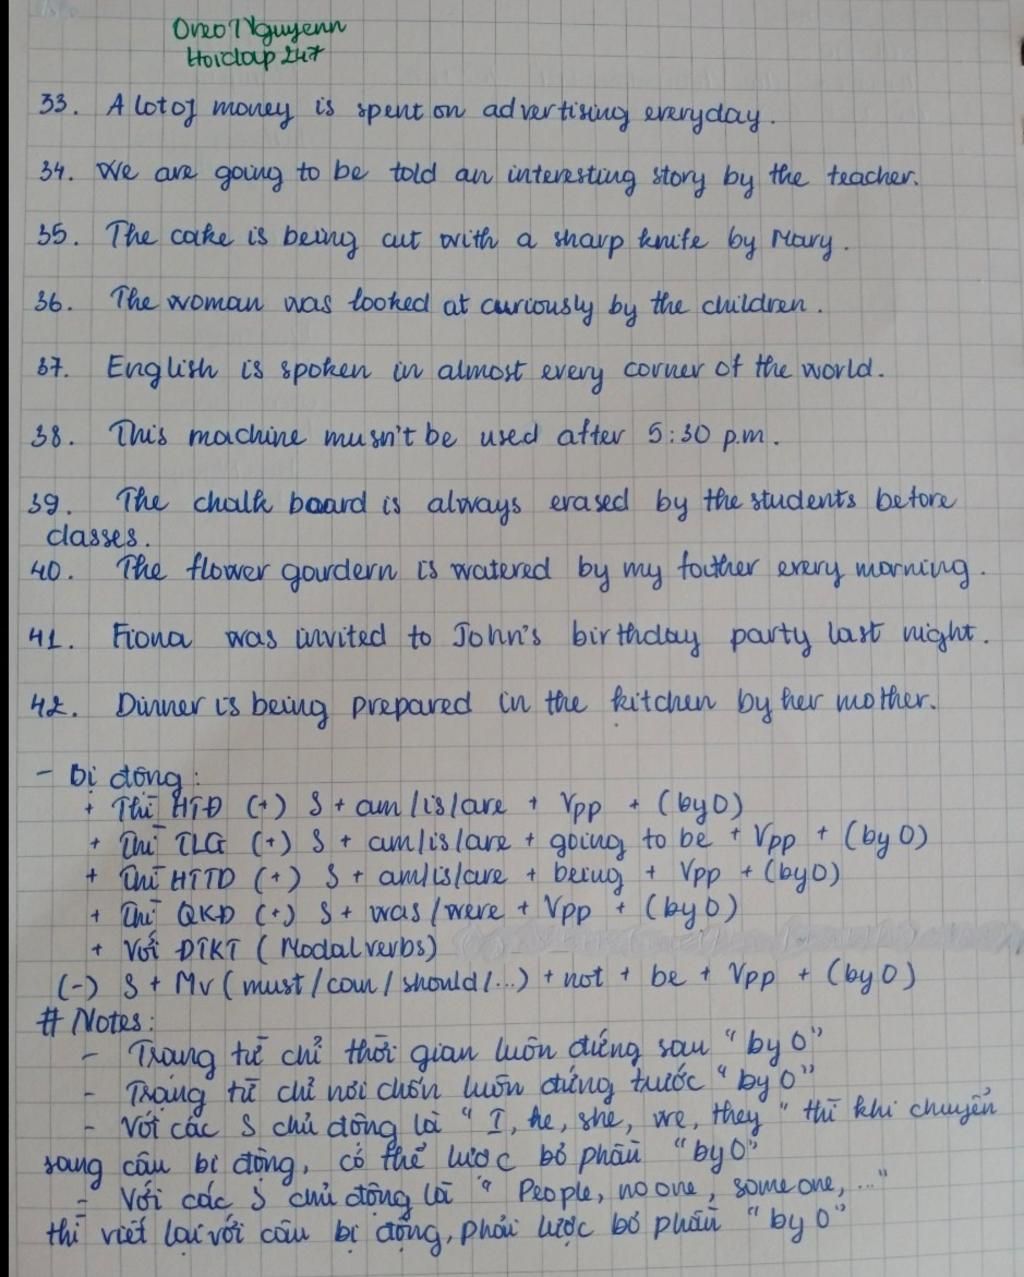 Oreo Nguyenn
Hoidap 247
33. A lot of money is spent on advertising everyday.
34. We are going to be told an interesting story by the teacher.
35. The cake is being cut with a sharp knife by Mary.
36. The woman was looked at curiously by the children.
37. English is spoken in almost every corner of the world.
38. This machine musn't be used after 5:30 p.m.
39. The chalk board is always erased by the students before
classes.
40. The flower gardern is watered by my father every morning.
41. Fiona was invited to John's birthday party last night.
42. Dinner is being prepared in the kitchen by her mother.
- Bị động:
+ Thì HTĐ (+) S + am/is/are + Vpp + (by O)
+ Thì TLG (+) S + am/is/are + going to be + Vpp + (by O)
+ Thì HTTD (+) S + am/is/are + being + Vpp + (by O)
+ Thì QKĐ (+) S + was/were + Vpp + (by O)
+ Với ĐTKT (Modal verbs)
(-) S + Mv (must/can/should/...) + not + be + Vpp + (by O)
# Notes:
- Trạng từ chỉ thời gian luôn đứng sau "by O"
- Trạng từ chỉ nơi chốn luôn đứng trước "by O"
- Với các S chủ động là "I, he, she, we, they" thì khi chuyển
sang câu bị động, có thể lược bỏ phần "by O"
- Với các S chủ động là "People, no one, some one, ..."
thì viết lại với câu bị động, phải lược bỏ phần "by O"